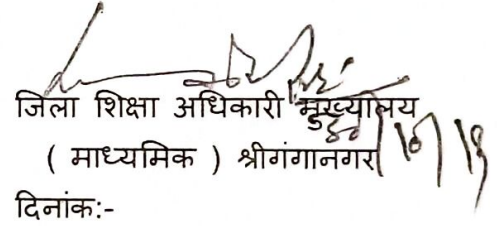 जिला शिक्षा अधिकारी मुख्यालय
( माध्यमिक ) श्रीगंगानगर
दिनांक:-